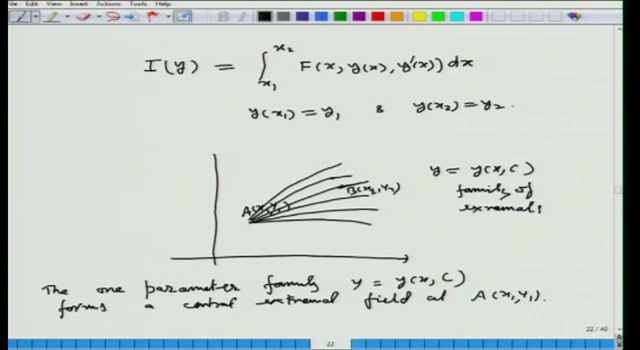 Edit View Insert Actions Tools Help
I(y) = ∫_{x₁}^{x₂} F(x, y(x), y'(x)) dx
y(x₁) = y₁ & y(x₂) = y₂.
y = y(x, C)
family of
extremals
B(x₂, y₂)
A(x₁, y₁)
The one parameter family y = y(x, C)
forms a central extremal field at A(x₁, y₁).
22 / 40
22